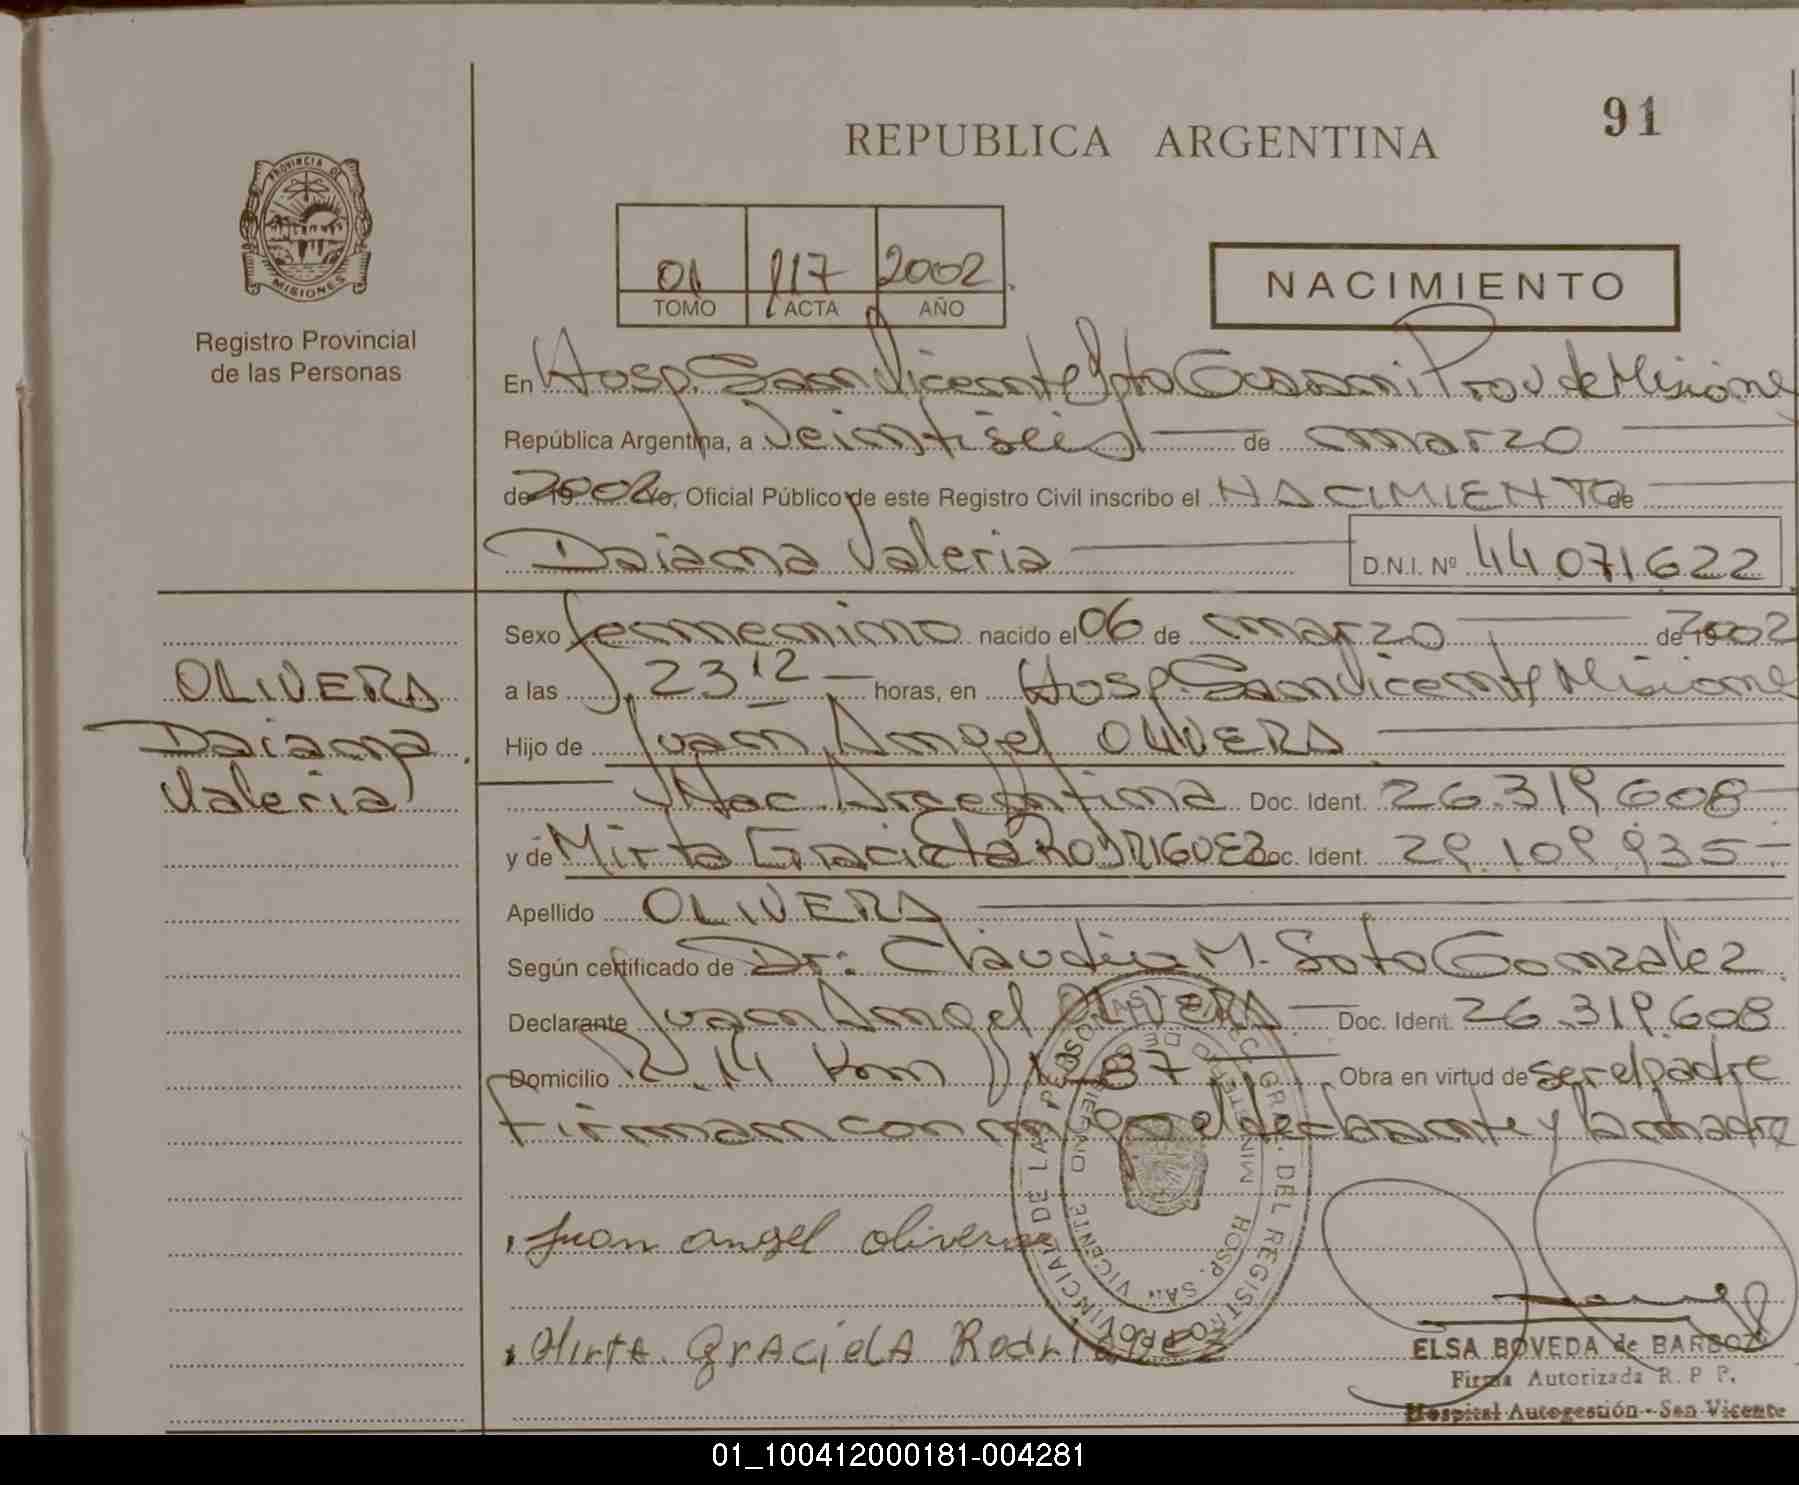 91
REPUBLICA ARGENTINA
PROVINCIA DE
MISIONES
Registro Provincial
de las Personas
01 117 2002
TOMO ACTA AÑO
NACIMIENTO
En Hosp. San Vicente Dpto Guarani Prov de Misiones
República Argentina, a Veintiseis de marzo
de 2002 Yo, Oficial Público de este Registro Civil inscribo el NACIMIENTO de
Daiana Valeria D.N.I. Nº 44.071.622
Sexo femenino nacido el 06 de marzo de 2002
OLIVERA
Daiana
Valeria
a las 23 12 horas, en Hosp. San Vicente Misiones
Hijo de Juan Angel OLIVERA
Nac. Argentina Doc. Ident. 26.319.608
y de Mirta Graciela RODRIGUEZ Doc. Ident. 29.109.935
Apellido OLIVERA
Según certificado de Dr: Claudia M. Soto Gonzalez
Declarante Juan Angel OLIVERA Doc. Ident. 26.319.608
Domicilio R. 14 Km 1187 Obra en virtud de ser el padre
firman conmigo el declarante y la madre
HOSP. SAN VICENTE
Juan angel olivera
Mirta Graciela Rodriguez
ELSA BOVEDA de BARBOZA
Firma Autorizada R. P. P.
Hospital Autogestión - San Vicente
01_100412000181-004281